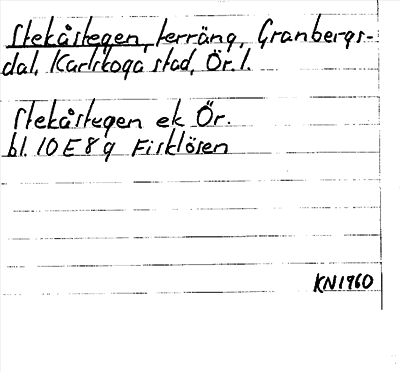 Stekåstegen, terräng, Granbergs-
dal, Karlskoga stad, Ör. l.
Stekåstegen ek Ör.
bl. 10E8g Fisklösen
KN1960